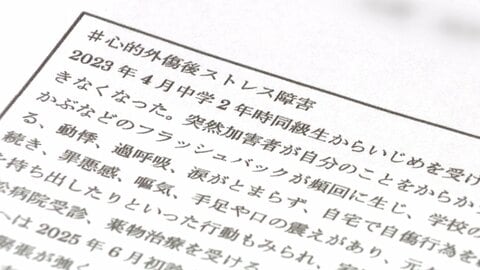 #心的外傷後ストレス障害
2023年4月中学2年時同級生からいじめを受け
きなくなった。突然加害者が自分のことをからか
かぶなどのフラッシュバックが頻回に生じ、学校の
る、動悸、過呼吸、涙がとまらず、自宅で自傷行為を
続き、罪悪感、嘔気、手足や口の震えがあり、元
を持ち出したりといった行動もみられ、
病院受診、薬物治療を受ける
へは2025年6月初診
緊張が強く